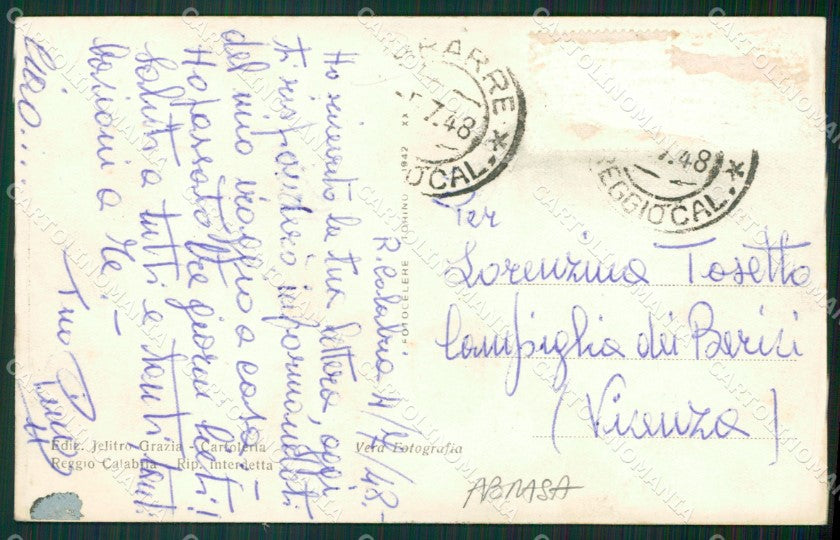 R. Calabria 4/7/48.-
Ho ricevuto la tua lettera, oggi
ti rispondero informandoti
del mio viaggio a casa.-
Ho passato tre giorni lieti!
Saluti a tutti e tanti tanti
bacioni a Te!-
Ciao...
Tuo
Per
Lorenzina Tosetto
Campiglia dei Berici
(Vicenza)
ARRE
7.48
CAL.
7.48
REGGIO CAL.
FOTOCELERE TORINO 1942 XX
Ediz. Jelitro Grazia - Cartoleria
Reggio Calabria - Rip. Interdetta
Vera Fotografia
ABRASA
CARTOLINOMANIA